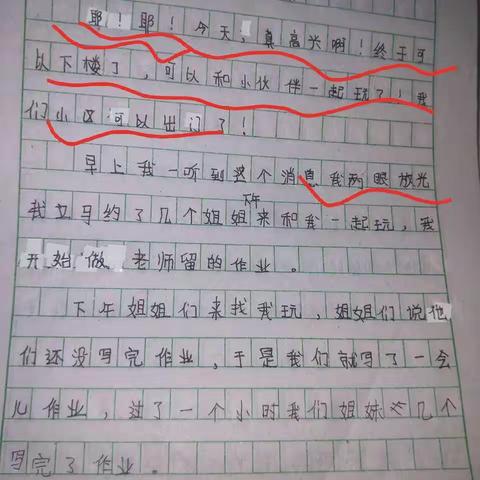 耶！耶！今天，真高兴啊！终于可
以下楼了，可以和小伙伴一起玩了！我
们小区可以出门了！
早上我一听到这个消息我两眼放光
我立马约了几个姐姐下午来和我一起玩，我
开始做老师留的作业。
下午姐姐们来找我玩，姐姐们说他
们还没写完作业，于是我们就写了一会
儿作业，过了一个小时我们姐妹几个
写完了作业。